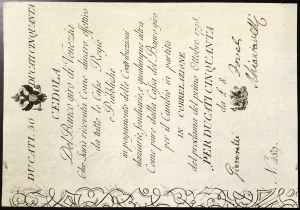 DUCATI 50
DUCATI CINQUANTA
CEDOLA
Del Banco giro di Venezia
Che sarà ricevuta Come dinaro effettivo
da tutte le Casse Regie
e Pubbliche
in pagamento delle Contribuzioni
daziarie, fondiarie, e qualunque altra
Come pure dalla Cassa del Banco giro
per il Cambio in partita
IN CORRELAZIONE
del proclama del primo Ottobre 1798
PER DUCATI CINQUANTA